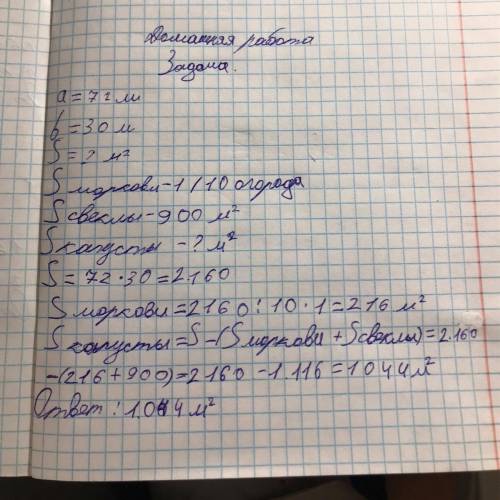 Домашняя работа
Задача.
a = 72 м
b = 30 м
S = ? м²
S моркови - 1/10 огорода
S свеклы - 900 м²
S капусты - ? м²
S = 72 · 30 = 2160
S моркови = 2160 : 10 · 1 = 216 м²
S капусты = S - (S моркови + S свеклы) = 2.160
- (216 + 900) = 2160 - 1.116 = 1044 м²
Ответ : 1.044 м²